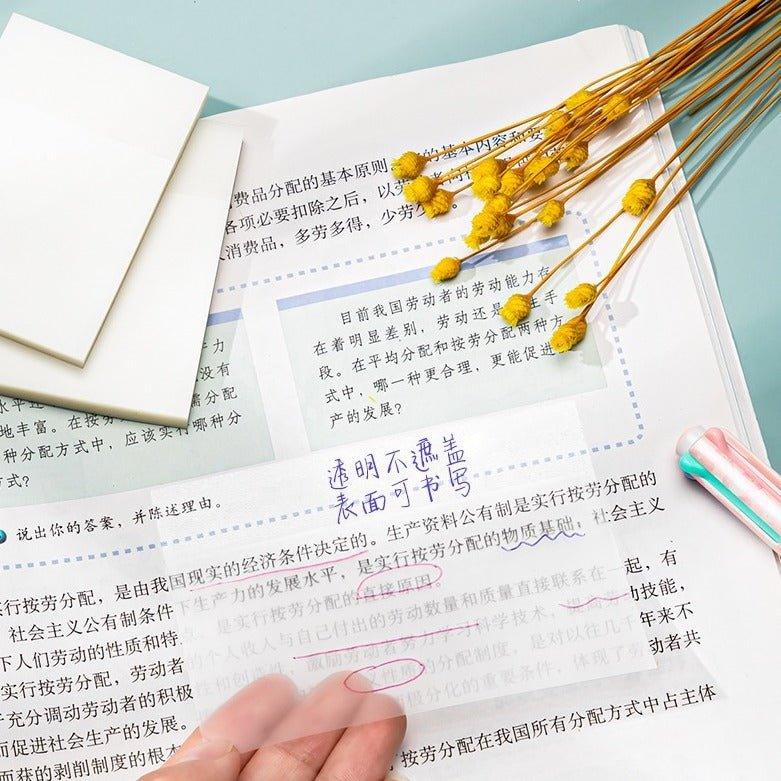 费品分配的基本原则
的基本内容和要
各项必要扣除之后，以
消费品，多劳多得，少劳
目前我国劳动者的劳动能力存
在着明显差别，劳动还是
生手
段。在平均分配和按劳分配两种方
式中，哪一种更合理，更能促进
产的发展？
力
没有
水平
需分配
地丰富。在按
种分配方式中，应该实行哪种分
式？
透明不遮盖
表面可书写
说出你的答案，并陈述理由。
实行按劳分配，是由我国现实的经济条件决定的。生产资料公有制是实行按劳分配的
社会主义公有制条件下生产力的发展水平，是实行按劳分配的物质基础；社会主义
下人们劳动的性质和特点，是实行按劳分配的直接原因。
实行按劳分配，劳动者的个人收入与自己付出的劳动数量和质量直接联系在一起，有
于充分调动劳动者的积极性和创造性，激励劳动者努力学习科学技术，提高劳动技能，
而促进社会生产的发展。
性质的分配制度，是对以往几千年来不
而获的剥削制度的根本
极分化的重要条件，体现了劳动者共
按劳分配在我国所有分配方式中占主体